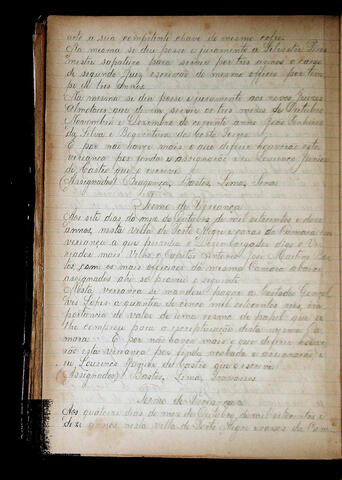 arte a sua competente chave do mesmo cofre.
Na mesma se deu posse e juramento a Silvestre
mestre sapateiro para servir por tres annos o cargo
de segundo Juiz escrivão do mesmo officio por tem-
po de tres annos.
Na mesma se deu posse e juramento aos novos Juizes
Almotaceis que devem servir os tres mezes de Outubro
Novembro e Dezembro do corrente anno João
da Silva e Boaventura da Costa Torres.
E por não haver mais o que deferir houverão esta
vereança por finda e assignarão eu Lourenço Junior
de Castro que o escrevi.
Assignados) Bragança, Bastos, Lima,
Termo de Vereança
Aos sete dias do mez de Outubro de mil oitocentos e dese
annos, nesta villa de Porto Alegre e casas da Camara em
vereança a que presidio o Desembargador digo o Ve-
riador mais Velho o Capitão Antonio José Martins Bas-
tos, com os mais officiaes da mesma Camara abaixo
assignados ahi se proveu o seguinte.
Nesta vereança se mandou passar a
Lopes a quantia de cinco mil oitocentos reis im-
portancia do valor de uma resma de papel que se
lhe comprou para a escripturação desta mesma Ca-
mara. E por não haver mais o que deferir houve-
rão esta vereança por finda acabada e assignarão e
eu Lourenço Junior de Castro que o escrevi
Assignados) Bastos, Lima,
Termo de Vereança
Aos quatorze dias do mez de Outubro, de mil oitocentos e
dese annos nesta villa de Porto Alegre e casas da Cam-